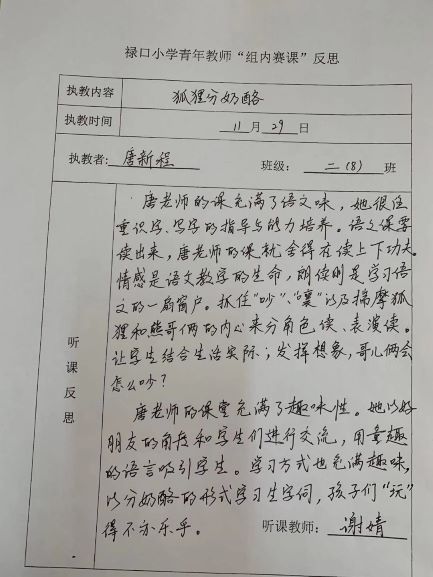 禄口小学青年教师“组内赛课”反思
执教内容 狐狸分奶酪
执教时间 11月29日
执教者: 唐新程 班级: 二(8) 班
听课反思
唐老师的课充满了语文味,她很注
重识字、写字的指导与能力培养。语文课要
读出来,唐老师的课就舍得在读上下功夫。
情感是语文教学的生命,朗读则是学习语
文的一扇窗户。抓住“吵”、“嚷”以及揣摩狐
狸和熊哥俩的内心来分角色读、表演读。
让学生结合生活实际;发挥想象,哥儿俩会
怎么吵?
唐老师的课堂充满了趣味性。她以好
朋友的角度和学生们进行交流,用童趣
的语言吸引学生。学习方式也充满趣味,
以分奶酪的形式学习生字词,孩子们“玩”
得不亦乐乎。
听课教师: 谢婧